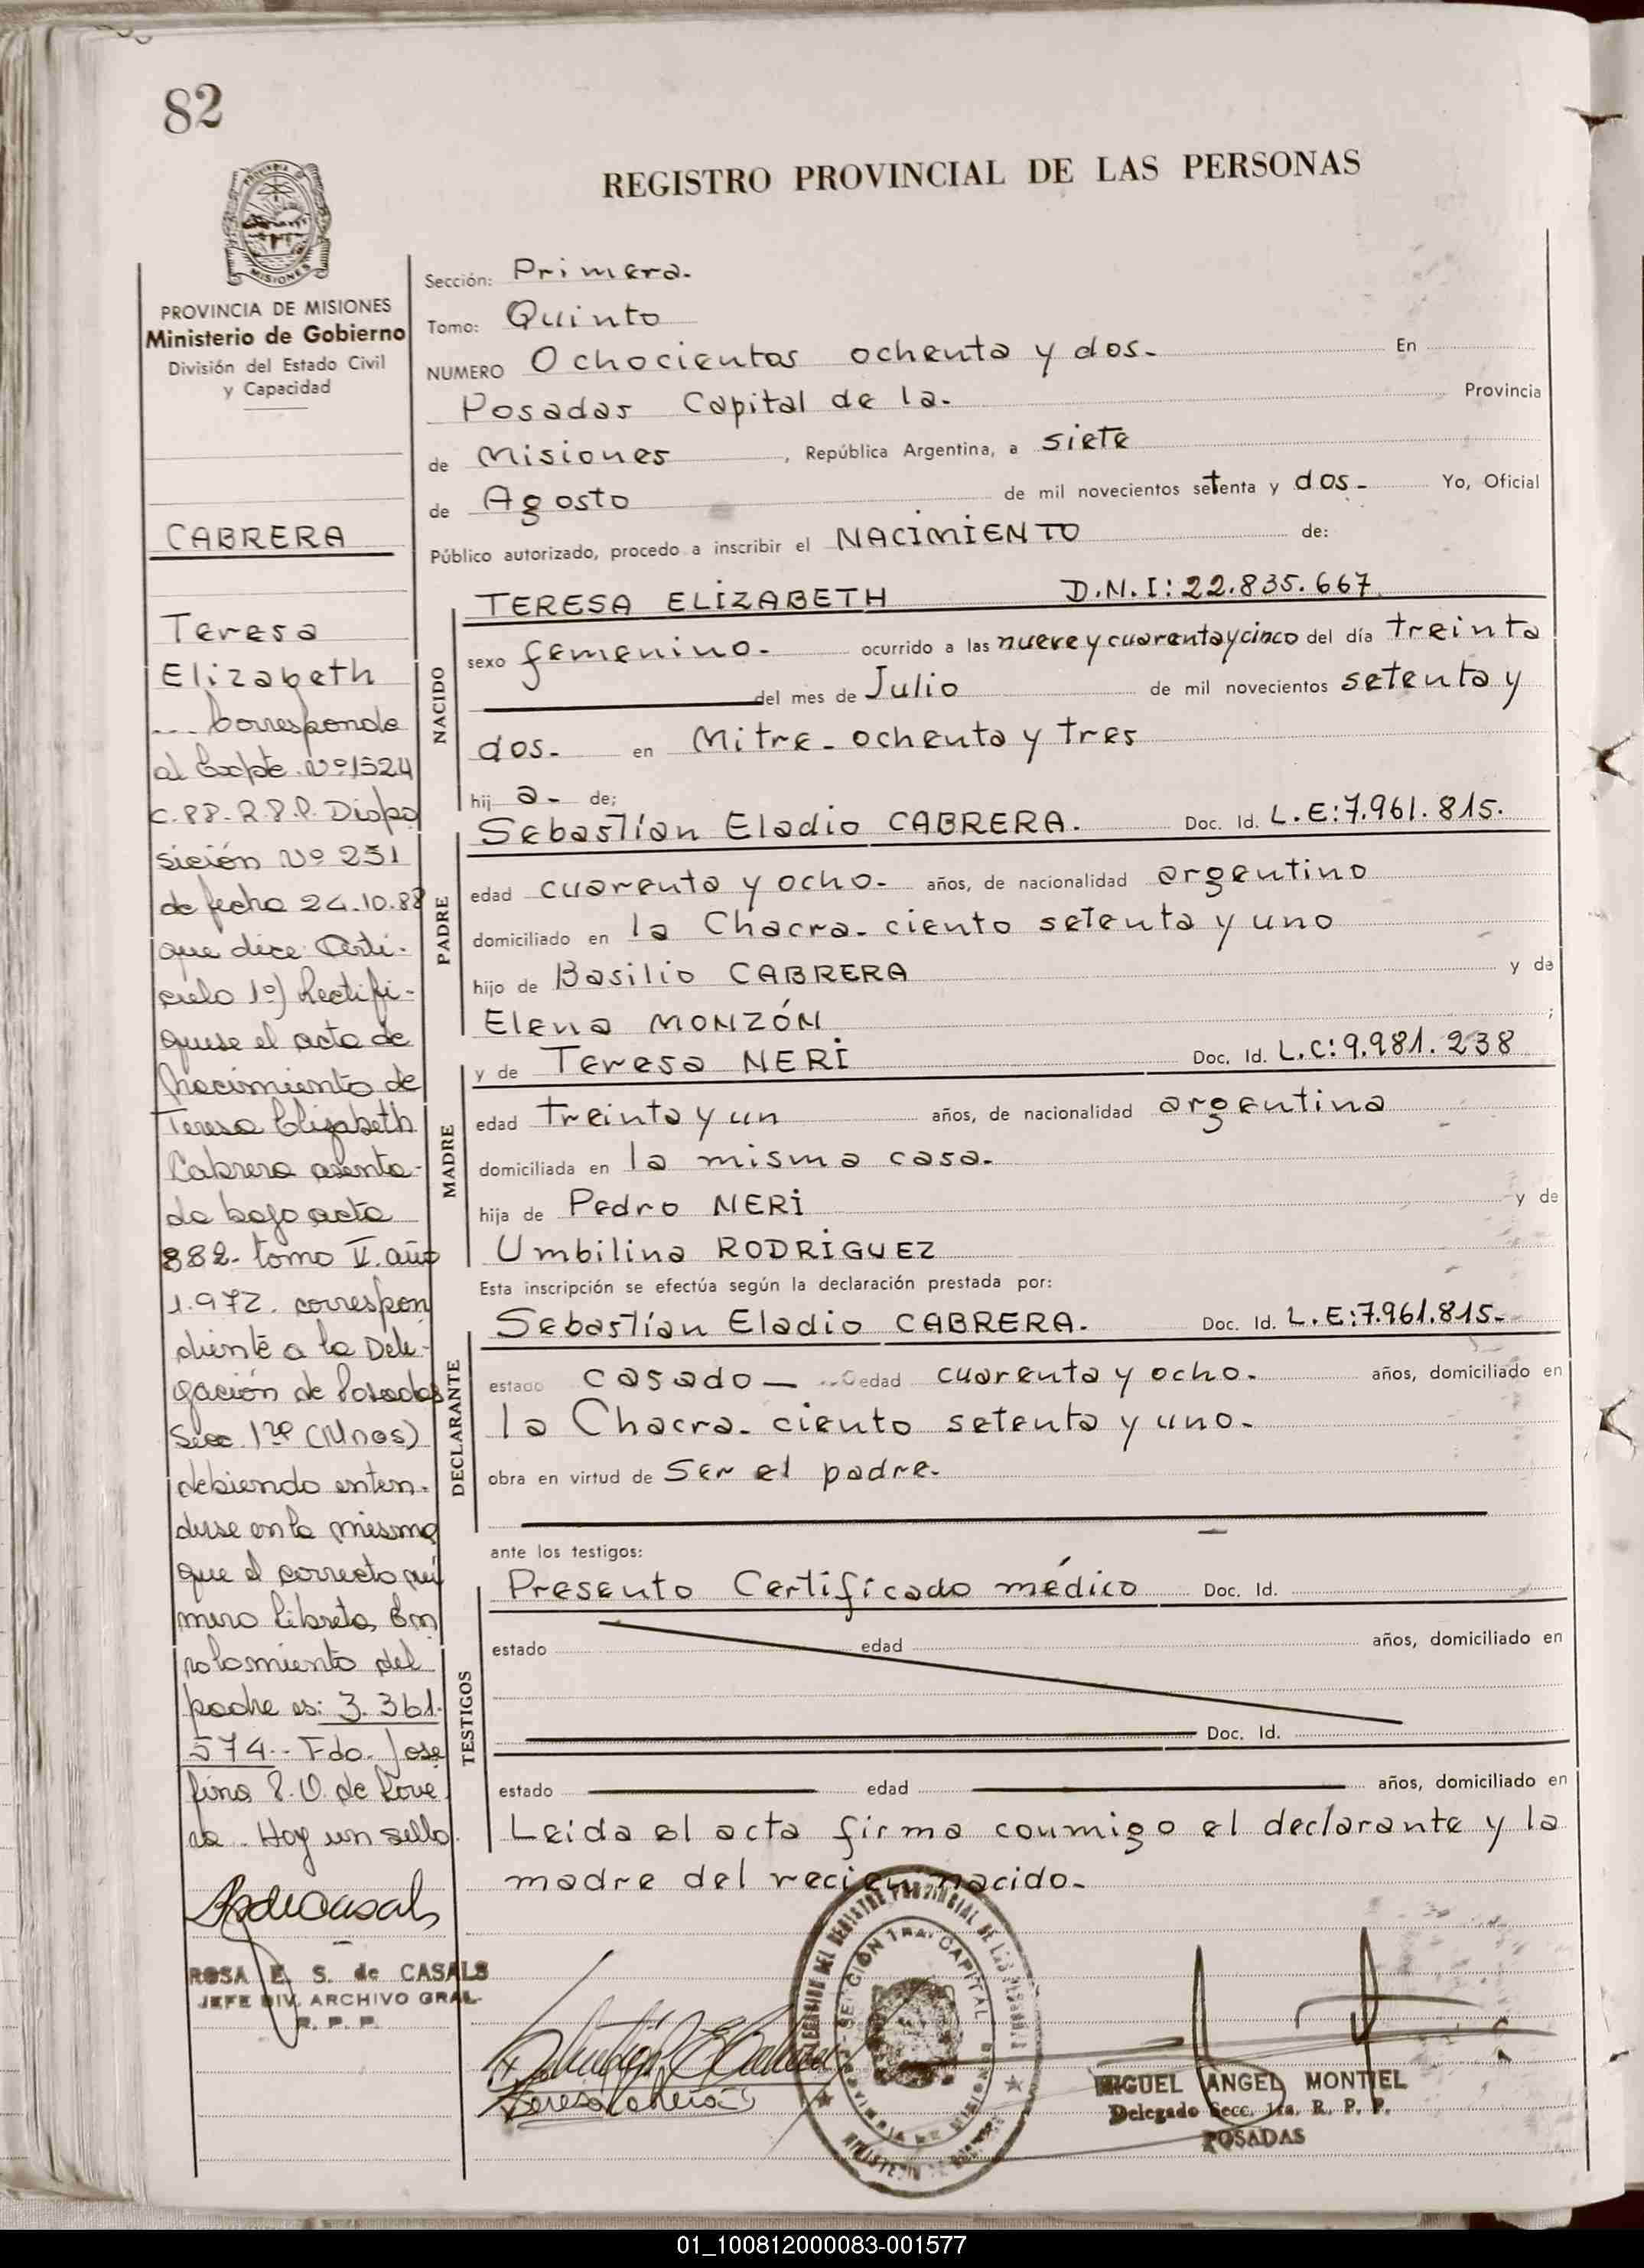 82
REGISTRO PROVINCIAL DE LAS PERSONAS
PROVINCIA DE MISIONES
Ministerio de Gobierno
División del Estado Civil
y Capacidad
CABRERA
Teresa
Elizabeth
... Corresponde
al Expte. Nº 1524
C. 88. R.P.P. Dispo
sición Nº 251
de fecha 24.10.88
que dice: Artí-
culo 1º) Rectifi-
quese el acta de
Nacimiento de
Teresa Elizabeth
Cabrera asenta-
da bajo acta
882- tomo V. año
1.972. correspon
diente a la Dele-
gación de Posadas
Secc. 1ra (Mnes)
debiendo enten-
derse en la misma
que el correcto nú
mero libreta En
rolamiento del
padre es: 3.361.
574.- Fdo. Jose
fina P. O. de Rove
ra. Hay un sello.
ROSA E. S. de CASALS
JEFE DIV. ARCHIVO GRAL.
R. P. P.
Sección: Primera.
Tomo: Quinto
NUMERO Ochocientos ochenta y dos. En
Posadas Capital de la. Provincia
de Misiones, República Argentina, a siete
de Agosto de mil novecientos setenta y dos. Yo, Oficial
Público autorizado, procedo a inscribir el NACIMIENTO de:
TERESA ELIZABETH D.N.I: 22.835.667
NACIDO
sexo femenino. ocurrido a las nueve y cuarenta y cinco del día treinta
del mes de Julio de mil novecientos setenta y
dos. en Mitre. ochenta y tres
hij a. de;
PADRE
Sebastián Eladio CABRERA. Doc. Id. L.E:7.961.815.
edad cuarenta y ocho. años, de nacionalidad argentino
domiciliado en la Chacra. ciento setenta y uno
hijo de Basilio CABRERA y de
Elena MONZÓN ;
MADRE
y de Teresa NERI Doc. Id. L.C:9.981.238
edad treinta y un años, de nacionalidad argentina
domiciliada en la misma casa.
hija de Pedro NERI y de
Umbilina RODRIGUEZ
Esta inscripción se efectúa según la declaración prestada por:
DECLARANTE
Sebastián Eladio CABRERA. Doc. Id. L.E:7.961.815.
estado casado edad cuarenta y ocho. años, domiciliado en
la Chacra. ciento setenta y uno.
obra en virtud de Ser el padre.
ante los testigos:
TESTIGOS
Presento Certificado médico Doc. Id.
estado edad años, domiciliado en
Doc. Id.
estado edad años, domiciliado en
Leida el acta firma conmigo el declarante y la
madre del recien nacido.
MIGUEL ANGEL MONTIEL
Delegado Secc. 1ra. R. P. P.
POSADAS
01_100812000083-001577